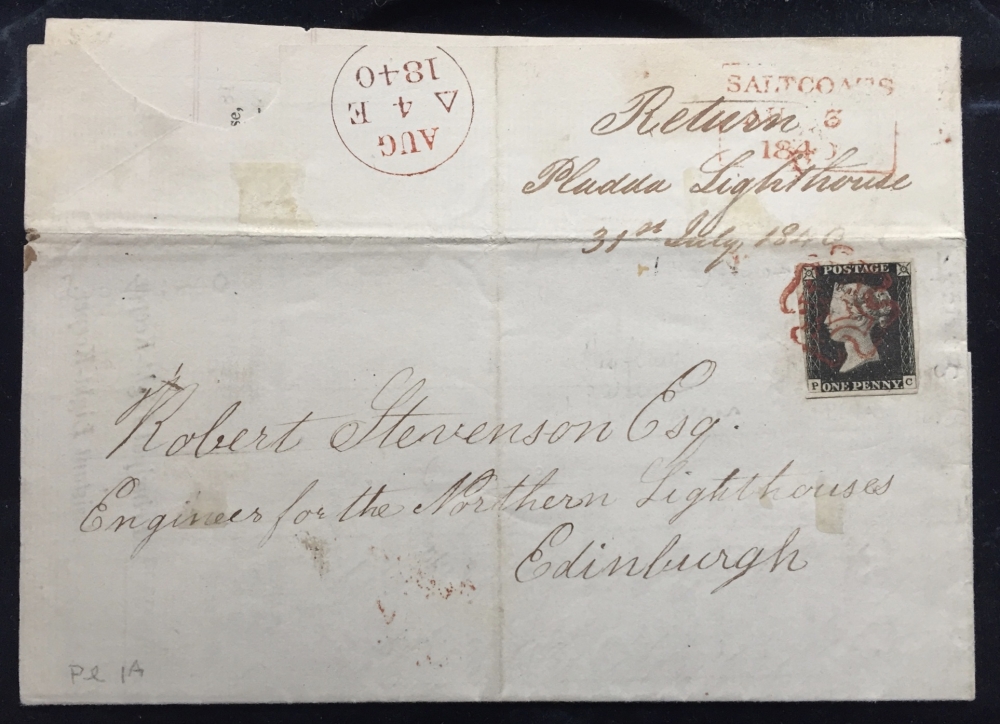 SALTCOATS
3
1840
Return
Pladda Lighthouse
31st July, 1840
AUG
A 4 E
1840
se,
POSTAGE
P ONE PENNY C
Robert Stevenson Esq.
Engineer for the Northern Lighthouses
Edinburgh
Pl 1A